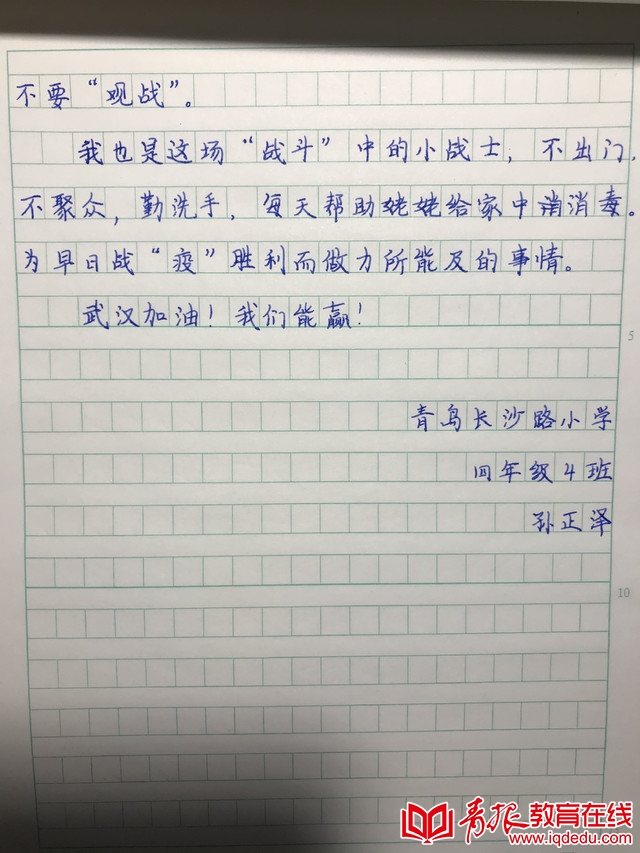 不要“观战”。
我也是这场“战斗”中的小战士，不出门，
不聚众，勤洗手，每天帮助姥姥给家中消消毒。
为早日战“疫”胜利而做力所能及的事情。
武汉加油！我们能赢！
5
青岛长沙路小学
四年级4班
孙正泽
10
青报教育在线
www.iqdedu.com